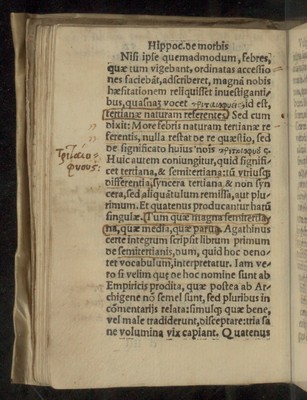 Hippoc. de morbis
Nisi ipse quemadmodum, febres,
quæ tum vigebant, ordinatas accessio
nes faciebāt, adscriberet, magnā nobis
hæsitationem reliquisset inuestiganti-
bus, quasnaʒ vocet τριταιοφυέας id est,
tertianæ naturam referentes. Sed cum
dixit: More febris naturam tertianæ re
ferentis, nulla restat de re quæstio, sed
de significato huius nois τριταιοφυὴς.
Huic autem coniungitur, quid signifi-
cet tertiana, & semitertiana: tū vtriusqȝ
differentia, syncera tertiana, & non syn
cera, sed aliquātulum remissa, aut plu-
rimum. Et quatenus producantur harū
singulæ. Tum quæ magna semitertia
na, quæ media, quæ parua. Agathinus
certe integrum scripsit librum primum
de semitertianis, dum, quid hoc deno-
tet vocabulum, interpretatur. Iam ve-
ro si velim quę de hoc nomine sunt ab
Empiricis prodita, quæ postea ab Ar-
chigene nō semel sunt, sed pluribus in
cōmentarijs relata: simulqȝ quæ bene,
vel male tradiderunt, disceptare: tria sa
ne volumina vix capiant. Quatenus
Τριταιο
φυους: